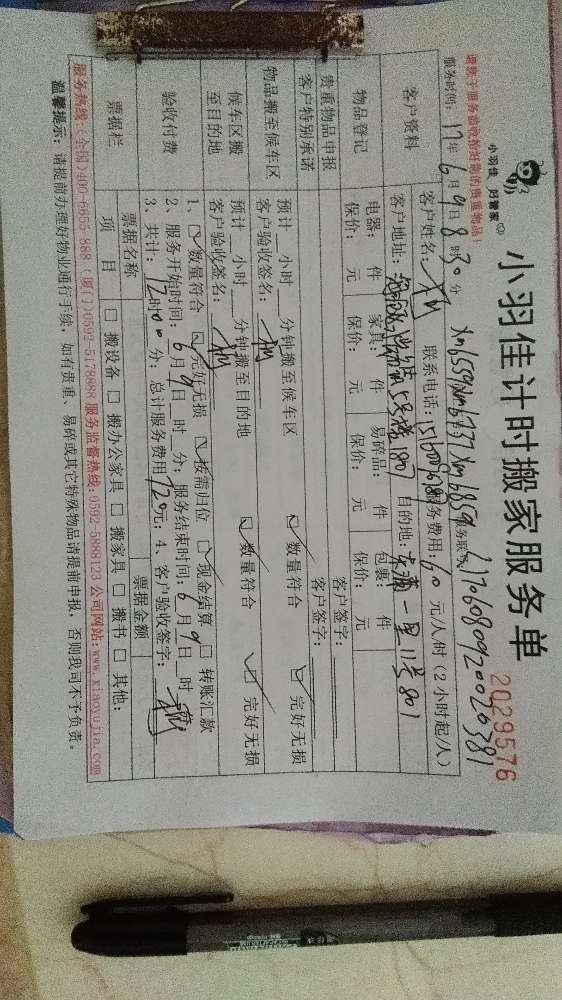 小羽佳 好管家
小羽佳计时搬家服务单
2029576
请您于服务前收拾好您的贵重物品!
服务时间: 17年6月9日8时30分
客户资料
客户姓名: 联系电话: 服务费用: 60元/人/时(2小时起/人)
客户地址: 5号楼807 目的地: 东浦一里11号801
物品登记
电器: 件 家具: 件 易碎品: 件 包裹: 件
保价: 元 保价: 元 保价: 元 保价: 元
贵重物品申报 客户签字:
客户特别承诺 客户签字:
物品搬至候车区
预计 小时 分钟搬至候车区 ☑ 数量符合 ☑ 完好无损
客户验收签名:
候车区搬至目的地
预计 小时 分钟搬至目的地 ☑ 数量符合 ☑ 完好无损
客户验收签名:
验收付费
1、☑ 数量符合 ☑ 完好无损 ☑ 按需归位 ☑ 现金结算 ☐ 转账汇款
2、服务开始时间: 6月9日 时 分; 服务结束时间: 6月9日 时 分
3、共计: 12时00分; 总计服务费用720元; 4、客户验收签字:
票据栏
票据名称 票据金额
项目 ☐ 搬设备 ☐ 搬办公家具 ☐ 搬家具 ☐ 搬书 ☐ 其他:
服务热线:(全国)400-6655-888 (厦门)0592-5178888 服务监督热线:0592-5888123 公司网站:www.xiaoyujia.com
温馨提示: 请提前办理好物业通行手续, 如有贵重、易碎或其它特殊物品请提前申报, 否则我司不予负责。